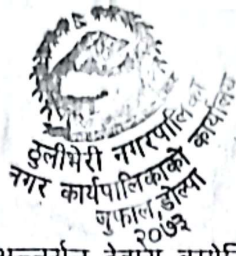 ठुलीभेरी नगरपालिका
नगर कार्यपालिकाको कार्यालय
जुफाल, डोल्पा
२०७३